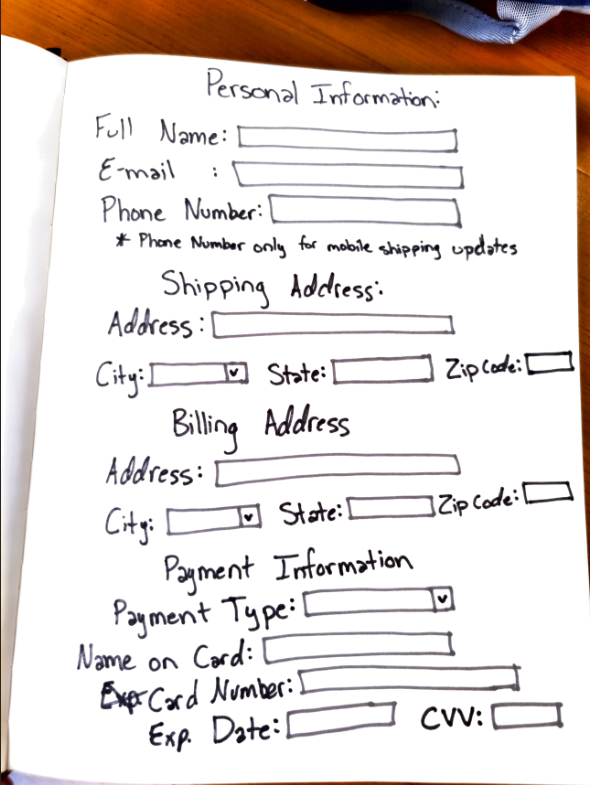 Personal Information:
Full Name:
E-mail :
Phone Number:
* Phone Number only for mobile shipping updates
Shipping Address:
Address:
City: State: Zip Code:
Billing Address
Address:
City: State: Zip Code:
Payment Information
Payment Type:
Name on Card:
Exp Card Number:
Exp. Date: CVV: